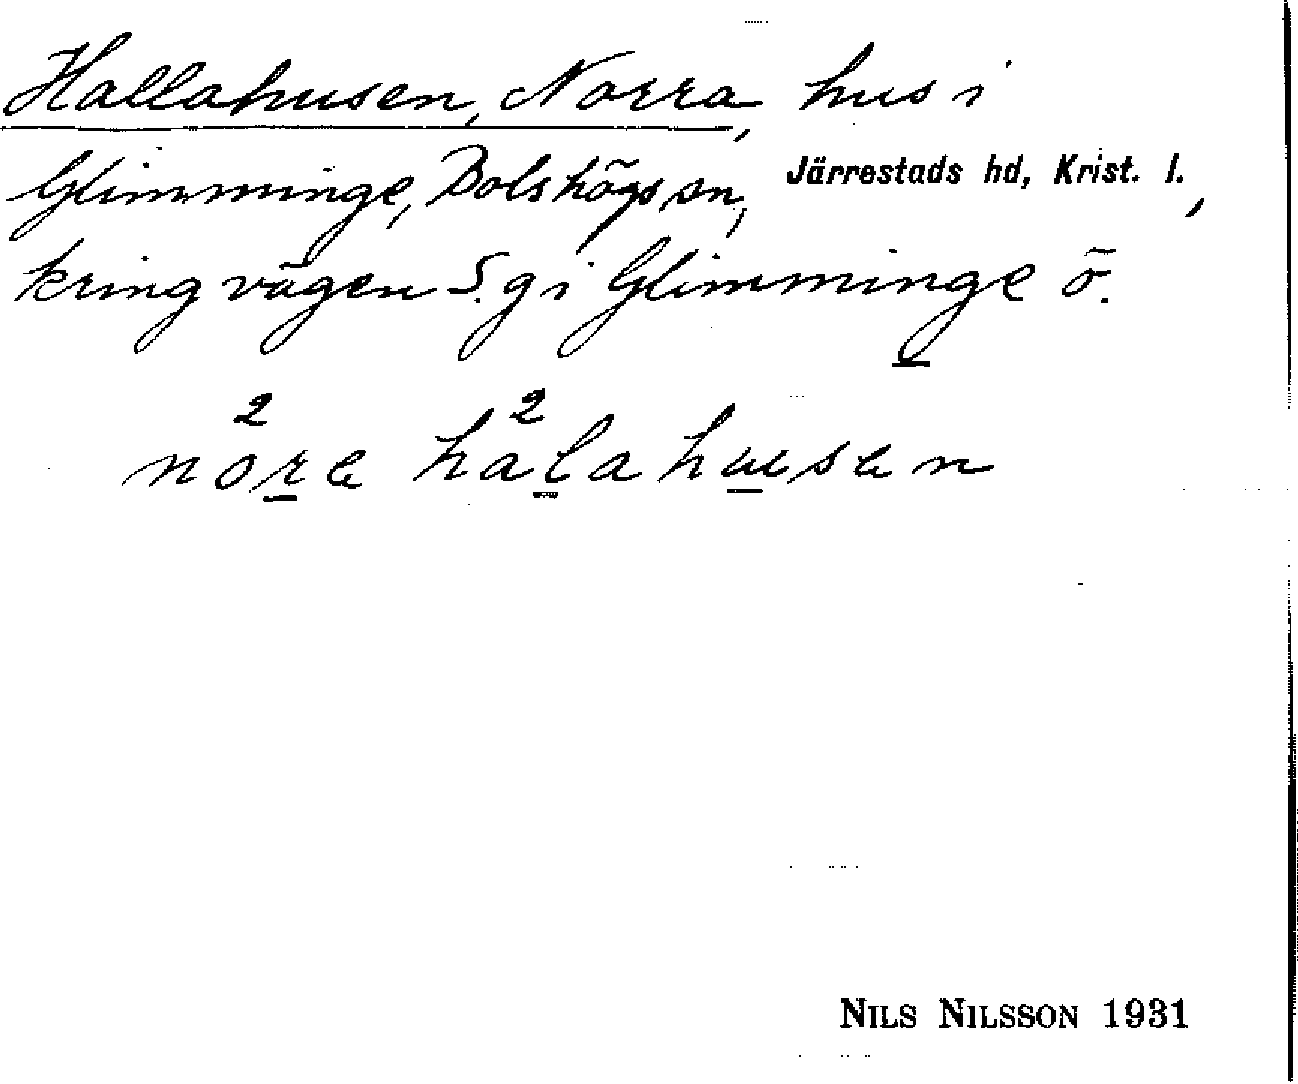 Hallahusen, Norra, hus i
Glimminge, Bolshögs sn, Järrestads hd, Krist. l.,
kring vägen S. g i Glimminge ö.
2 2
nora halahusan
NILS NILSSON 1931